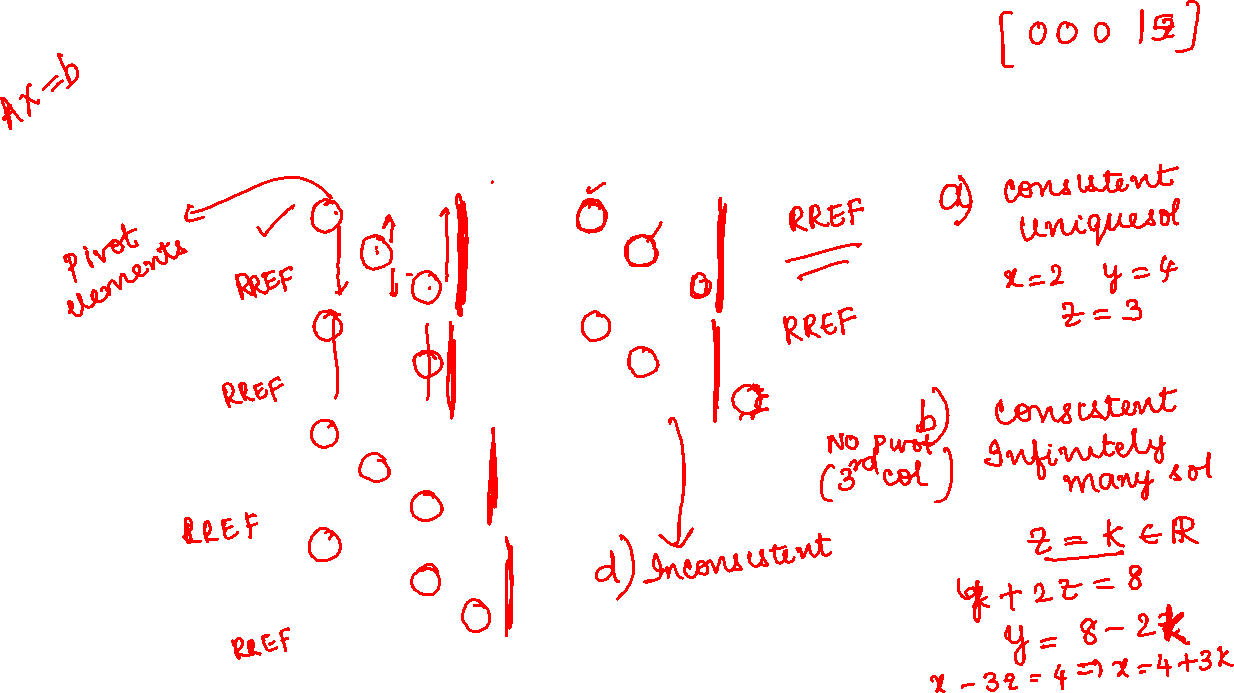 [ 0 0 0 | ]
AX=b
Pivot
elements
RREF
RREF
RREF
RREF
RREF
RREF
a) consistent
Uniquesol
x=2 y=4
z=3
b) consistent
Infinitely
many sol
No pivot
(3rd col)
z = k ∈ R
y + 2z = 8
y = 8-2k
x-3z=4 => x=4+3k
d) Inconsistent